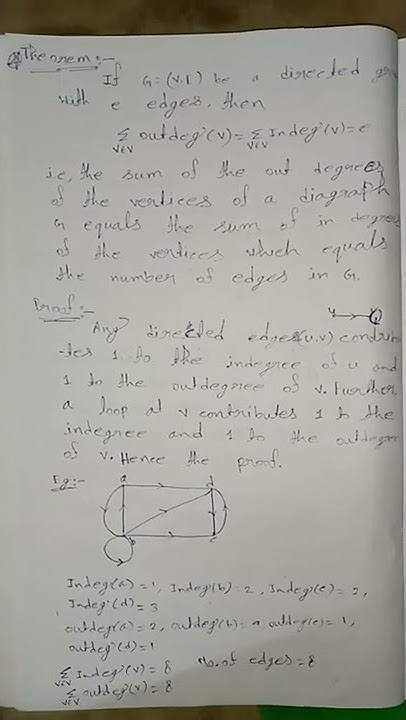 Theorem:-
If G=(V.E) be a directed gr
with e edges, then
∑ outdeg(v) = ∑ Indeg(v) = e
v∈V v∈V
i.e, the sum of the out degrees
of the vertices of a diagraph
G equals the sum of in degrees
of the vertices which equals
the number of edges in G.
Proof:-
Any directed edges(u,v) contribu
-tes 1 to the indegree of u and
1 to the outdegree of v. Further,
a loop at v contributes 1 to the
indegree and 1 to the outdegree
of v. Hence the proof.
Eg:-
a d
b c
Indeg(a) = 1, Indeg(b) = 2, Indeg(c) = 2,
Indeg(d) = 3
outdeg(a) = 2, outdeg(b) = 4, outdeg(c) = 1,
outdeg(d) = 1
∑ Indeg(v) = 8 No. of edges = 8
v∈V
∑ outdeg(v) = 8
v∈V